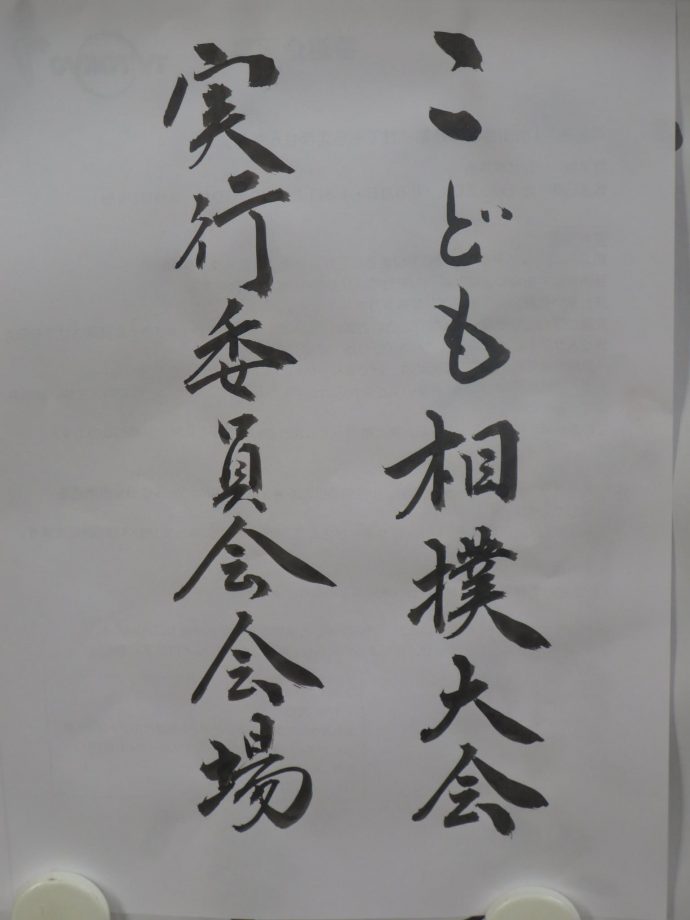 こども相撲大会
実行委員会会場